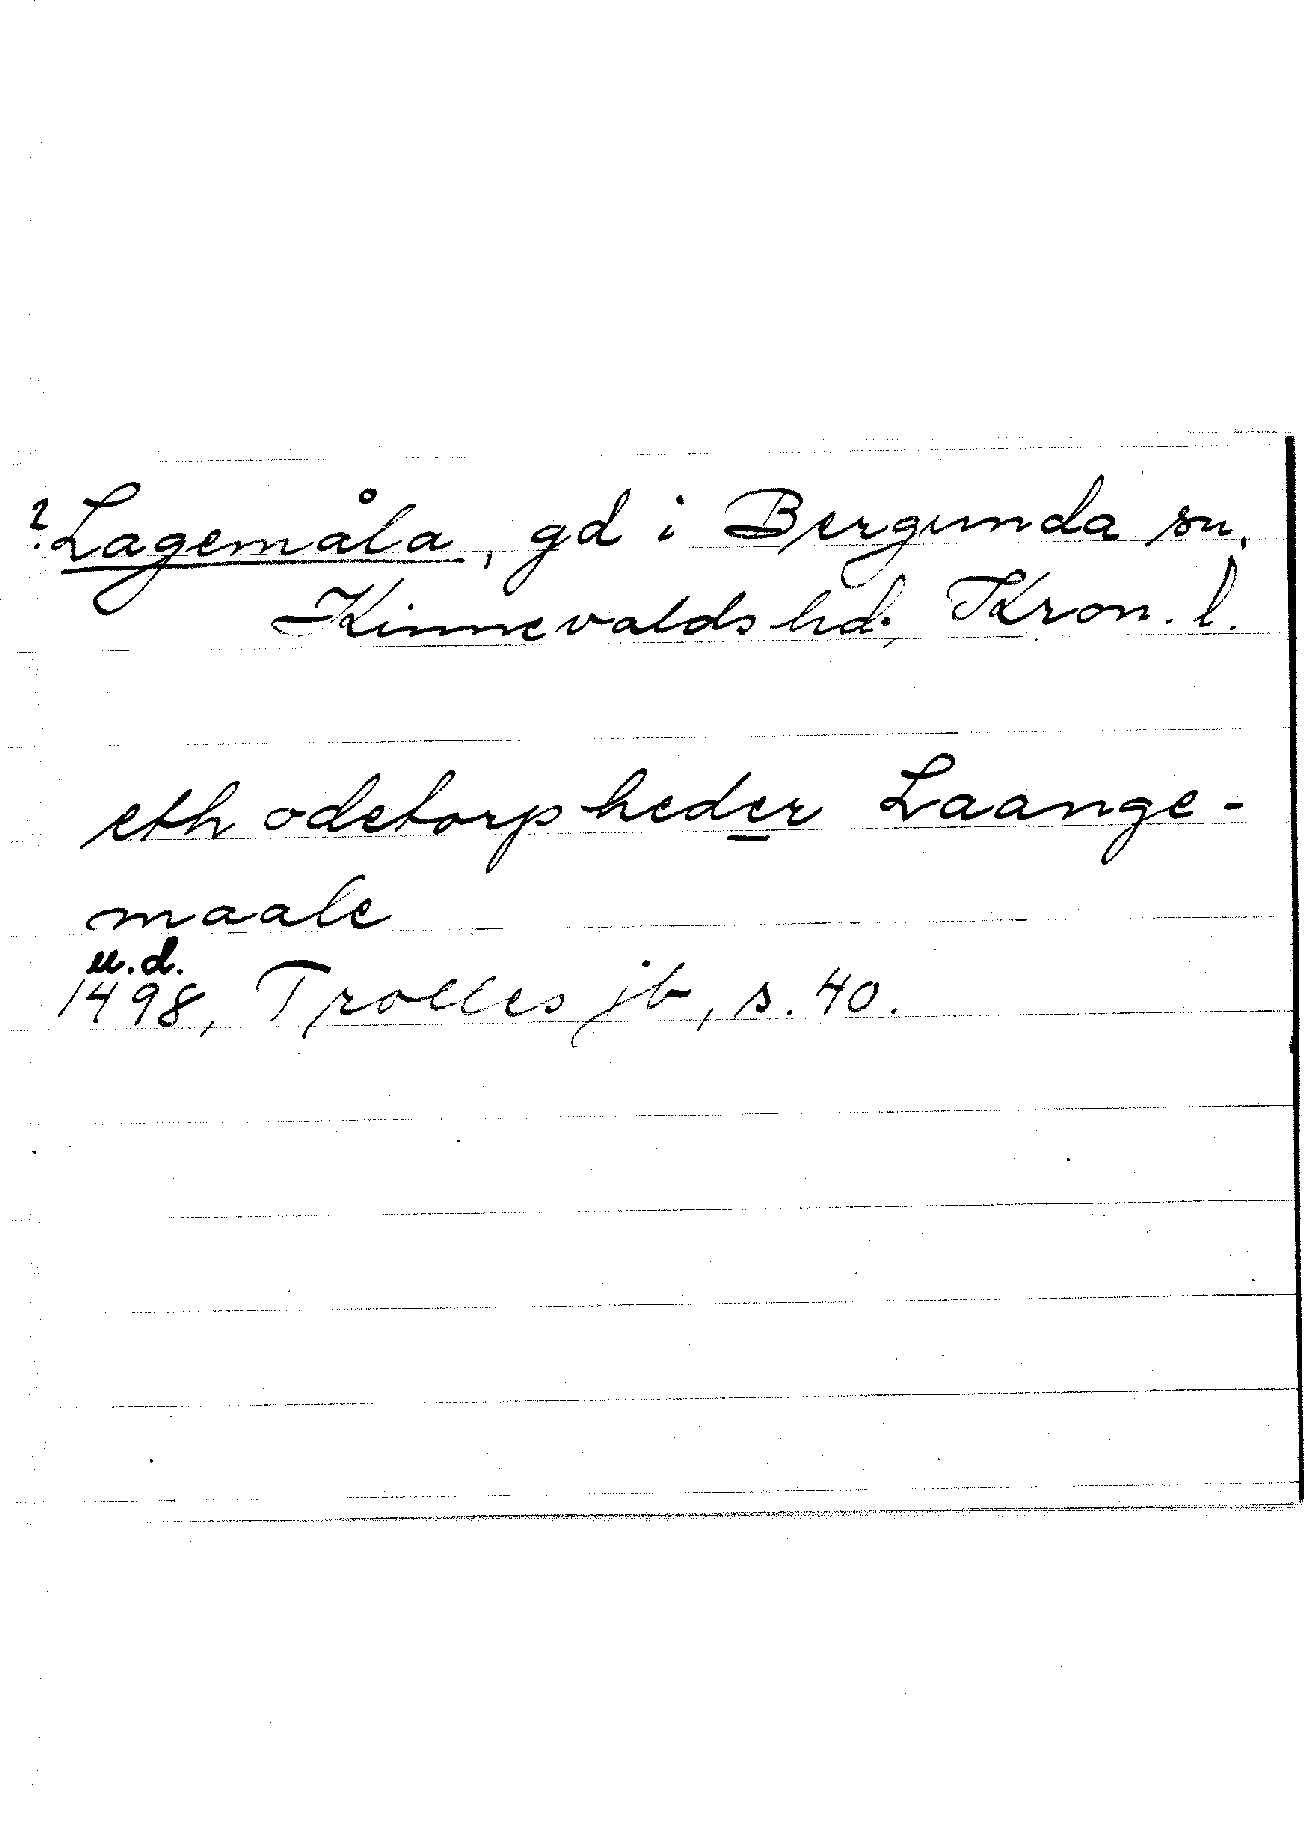 ? Lagemåla, gd i Bergunda sn,
Kinnevalds hd, Kron. l.
eth odetorp heder Laange-
maale
u.d.
1498, Trolles jb, s. 40.